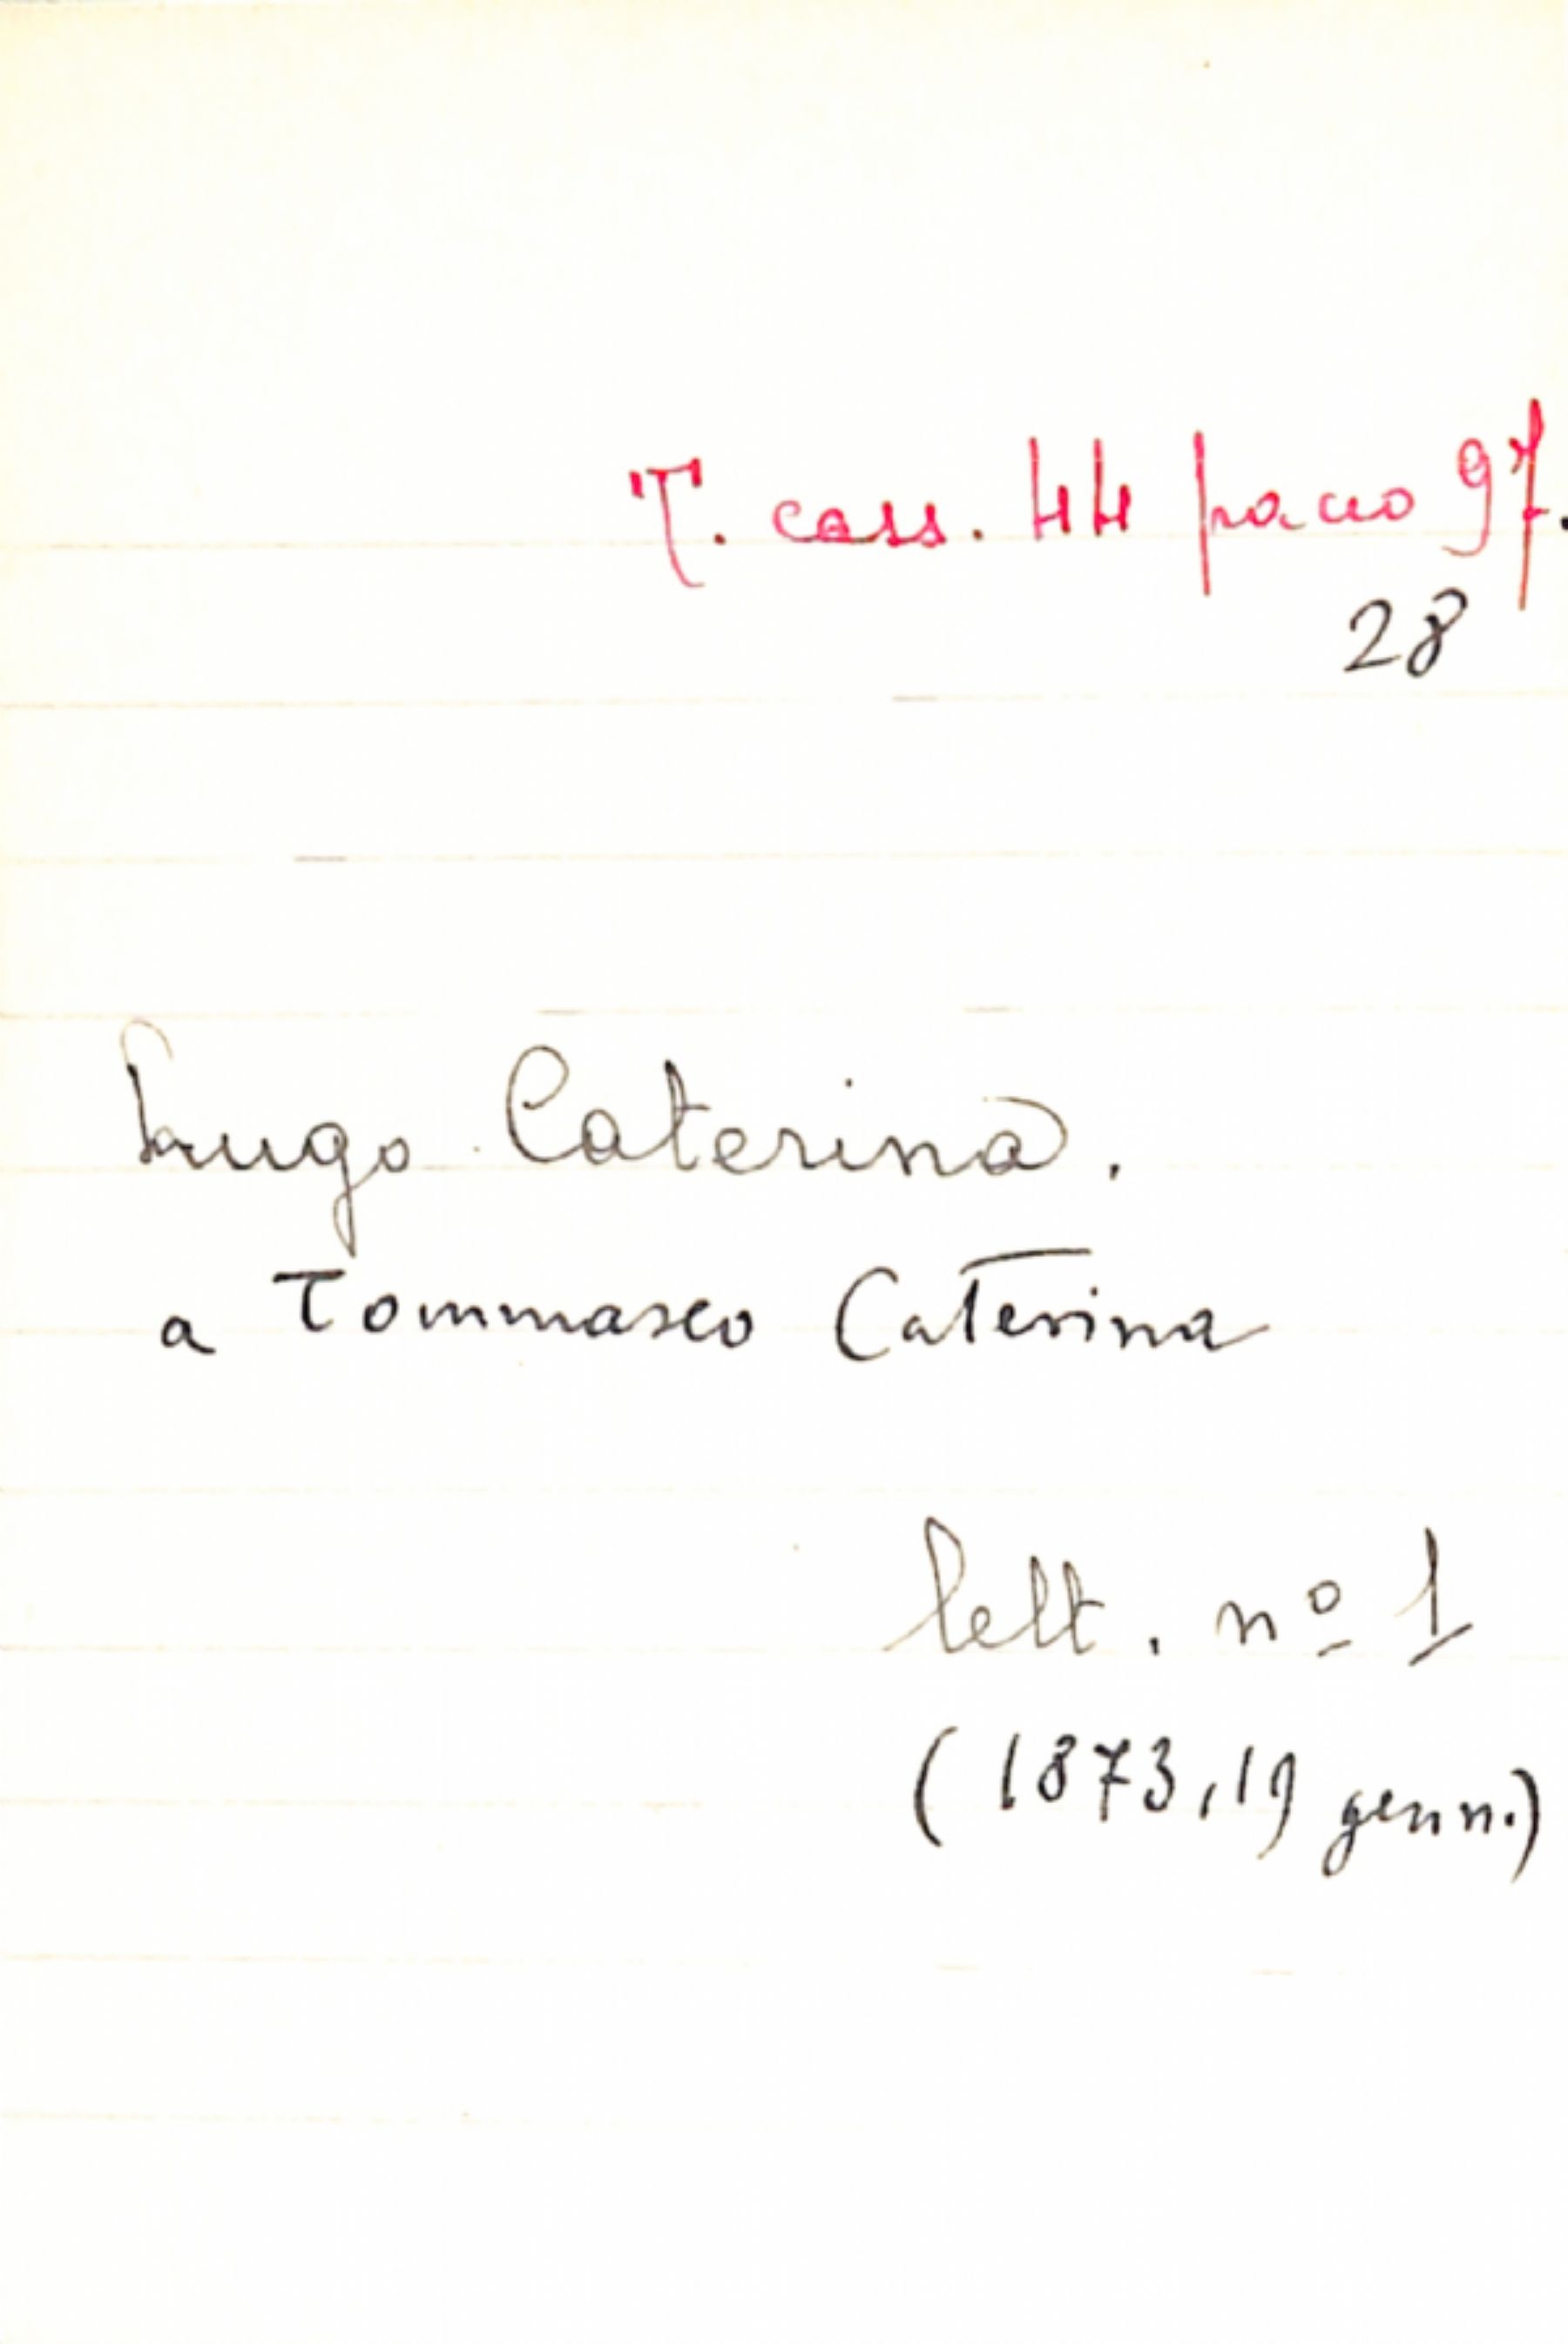 T. cass. 44 pacco 97.
28
Lugo Caterina.
a Tommaseo Caterina
lett. nº 1
(1873, 19 genn.)